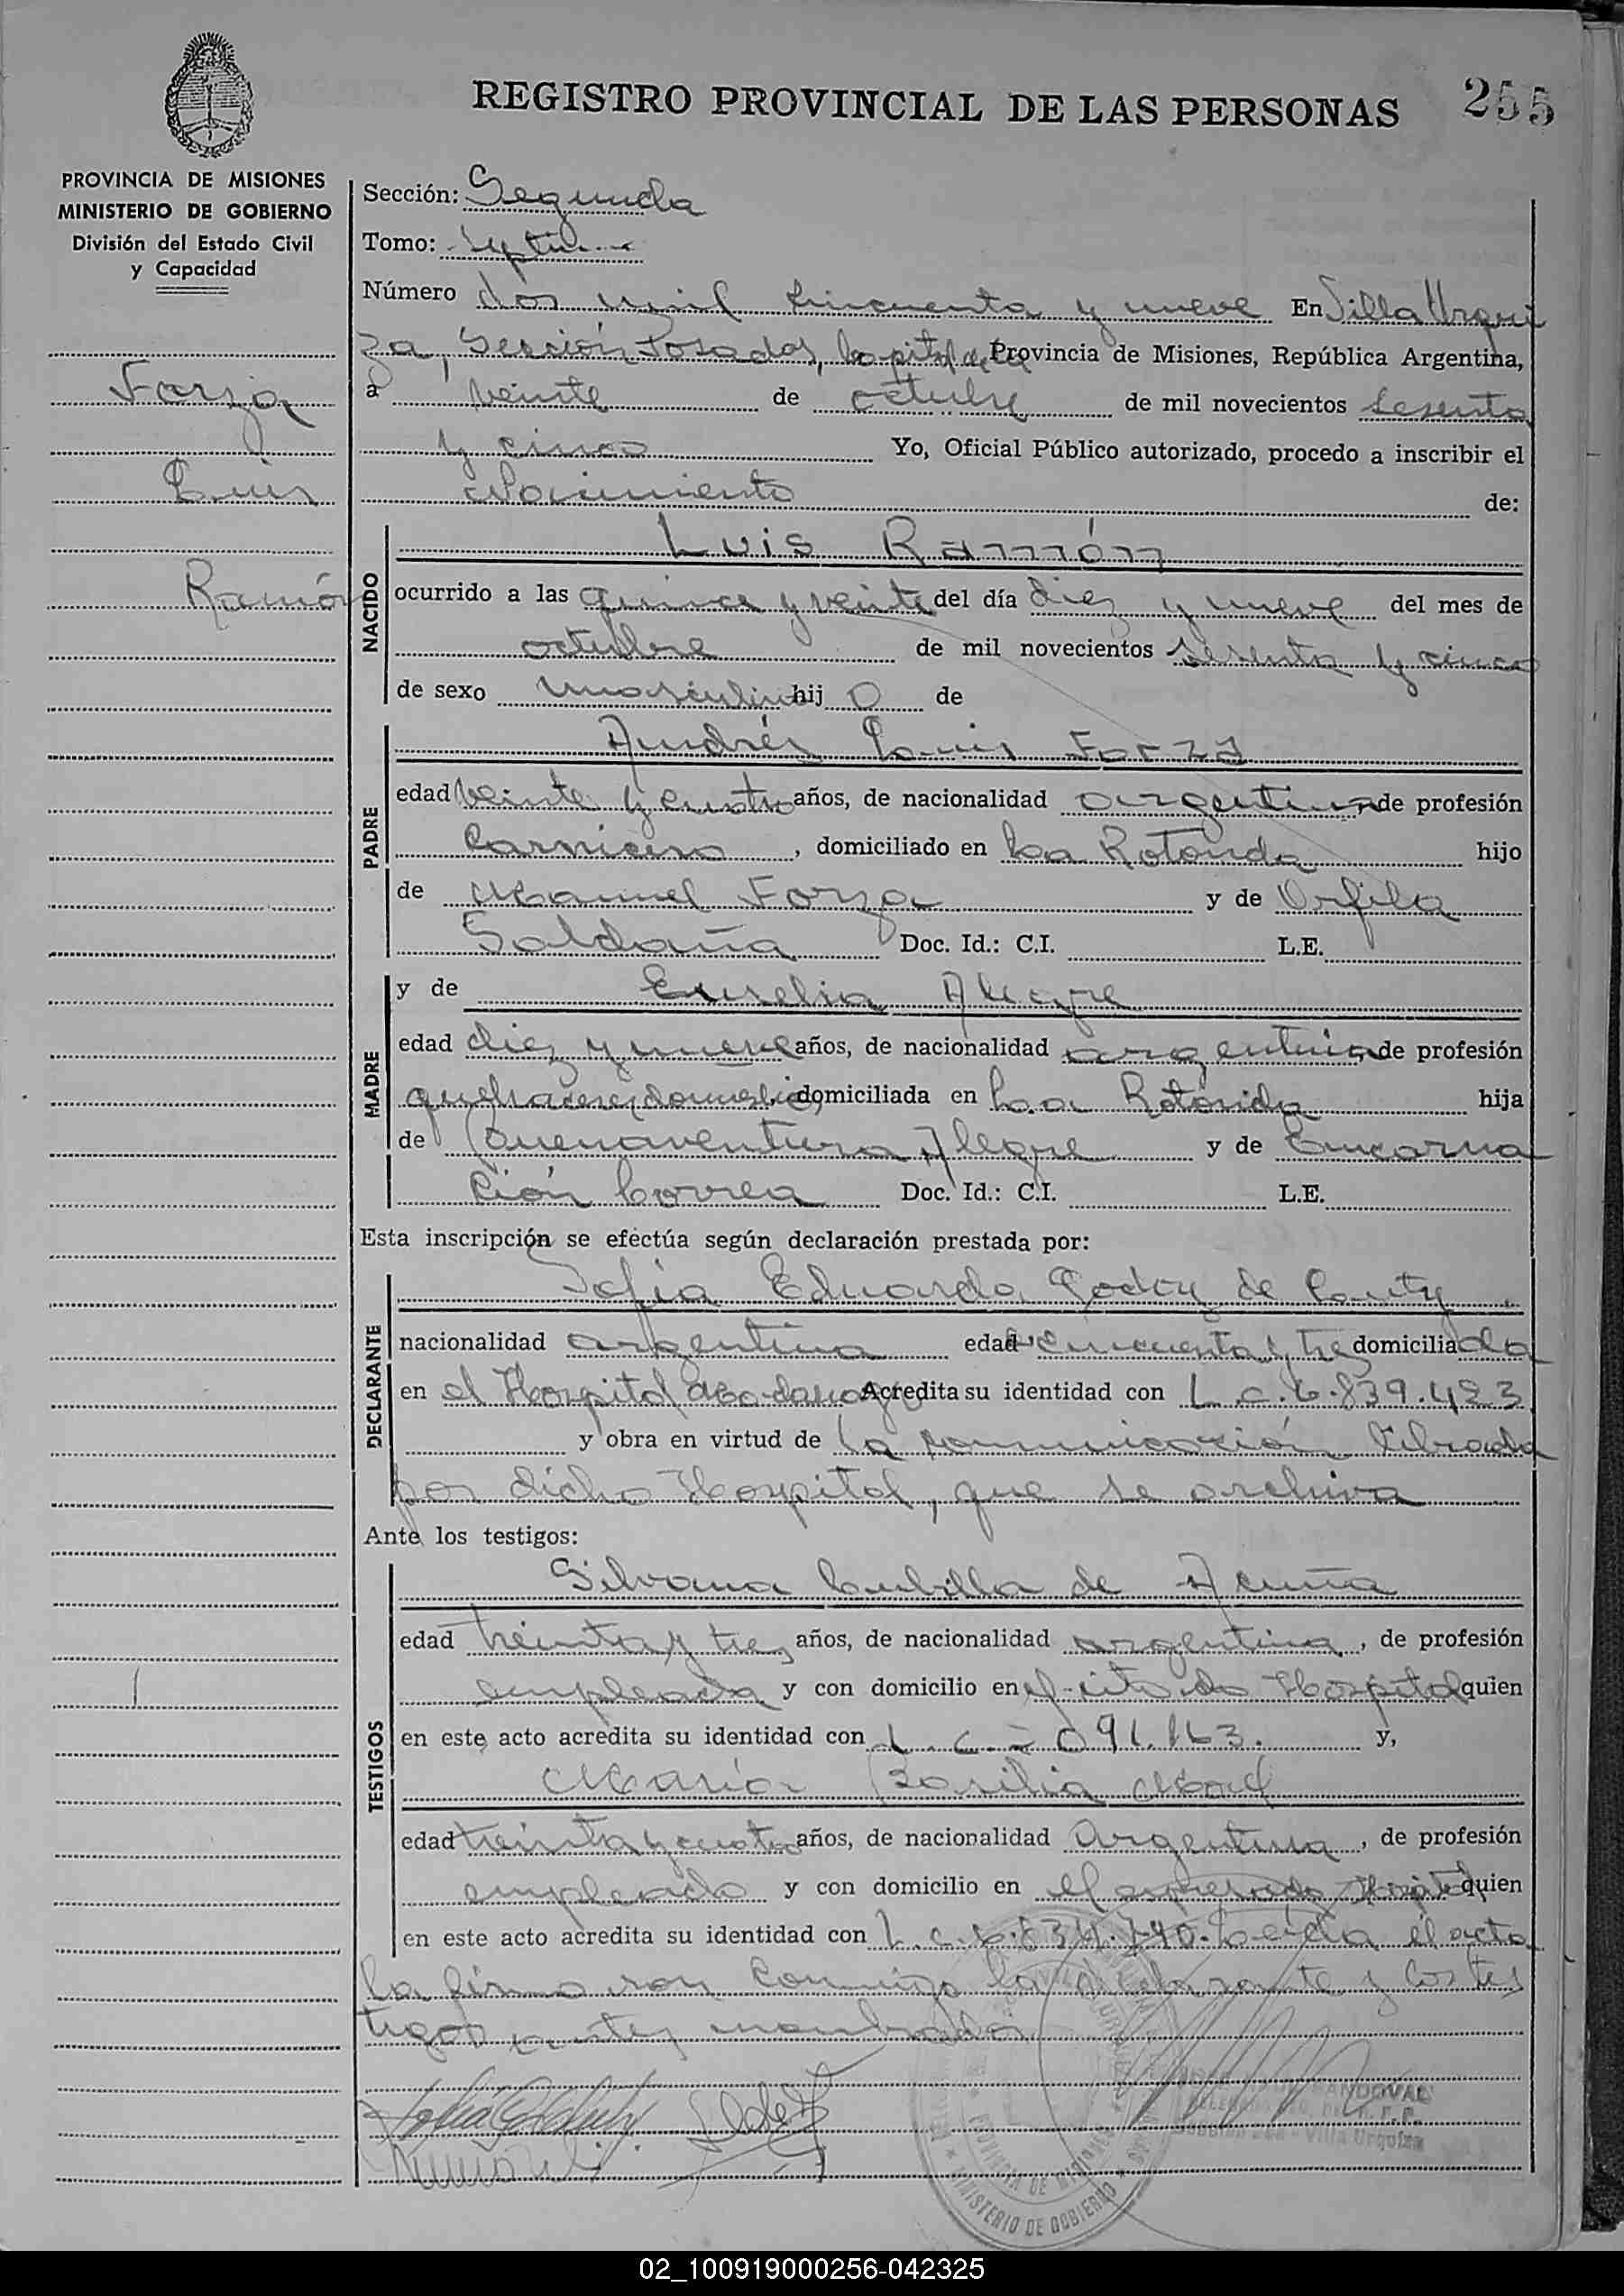 REGISTRO PROVINCIAL DE LAS PERSONAS 255
PROVINCIA DE MISIONES
MINISTERIO DE GOBIERNO
División del Estado Civil
y Capacidad
Forza
Luis
Ramón
Sección: Segunda
Tomo: Septimo
Número dos mil cincuenta y nueve En Villa Urqui
za, Sección Posadas, Capital de la Provincia de Misiones, República Argentina,
a veinte de octubre de mil novecientos sesenta
y cinco Yo, Oficial Público autorizado, procedo a inscribir el
Nacimiento de:
NACIDO
Luis Ramón
ocurrido a las quince y veinte del día diez y nueve del mes de
octubre de mil novecientos sesenta y cinco
de sexo masculino hij o de
PADRE
Andrés Luis Forza
edad veinte y cuatro años, de nacionalidad argentina, de profesión
Carnicero, domiciliado en La Rotonda hijo
de Manuel Forza y de Orfila
Saldaña Doc. Id.: C.I. L.E.
MADRE
y de Eurelia Alegre
edad diez y nueve años, de nacionalidad argentina, de profesión
quehaceres domesticos, domiciliada en La Rotonda hija
de Buenaventura Alegre y de Encarna
ción Correa Doc. Id.: C.I. L.E.
Esta inscripción se efectúa según declaración prestada por:
DECLARANTE
Sofia Eduarda Godoy de
nacionalidad argentina edad cincuenta y tres domiciliada
en el Hospital Acredita su identidad con L.C. 6.839.423
y obra en virtud de la comunicación librada
por dicho Hospital, que se archiva
Ante los testigos:
TESTIGOS
Silvana Cubilla de Acuña
edad treinta y tres años, de nacionalidad argentina, de profesión
empleada y con domicilio en el citado Hospital quien
en este acto acredita su identidad con L.C. 091.163. y,
María Basilia
edad treinta y cuatro años, de nacionalidad Argentina, de profesión
empleada y con domicilio en el expresado Hospital quien
en este acto acredita su identidad con L.C. 6.834.740. Leida el acta
la firmaron conmigo la declarante y los tes
tigos antes nombrados
SANDOVAL
Villa Urquiza
PROVINCIA DE MISIONES
MINISTERIO DE GOBIERNO
02_100919000256-042325